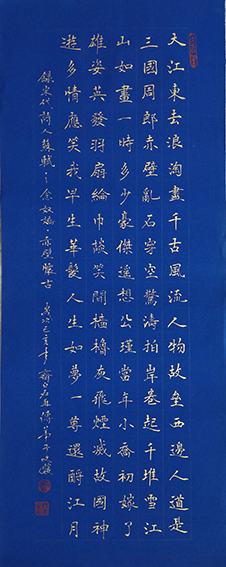 大江東去浪淘盡千古風流人物故壘西邊人道是
三國周郎赤壁亂石穿空驚濤拍岸卷起千堆雪江
山如畫一時多少豪傑遙想公瑾當年小喬初嫁了
雄姿英發羽扇綸巾談笑間檣櫓灰飛煙滅故國神
遊多情應笑我早生華髮人生如夢一尊還酹江月
錄宋代詩人蘇軾:念奴嬌·赤壁懷古 歲次己亥年齊白石再傳弟子